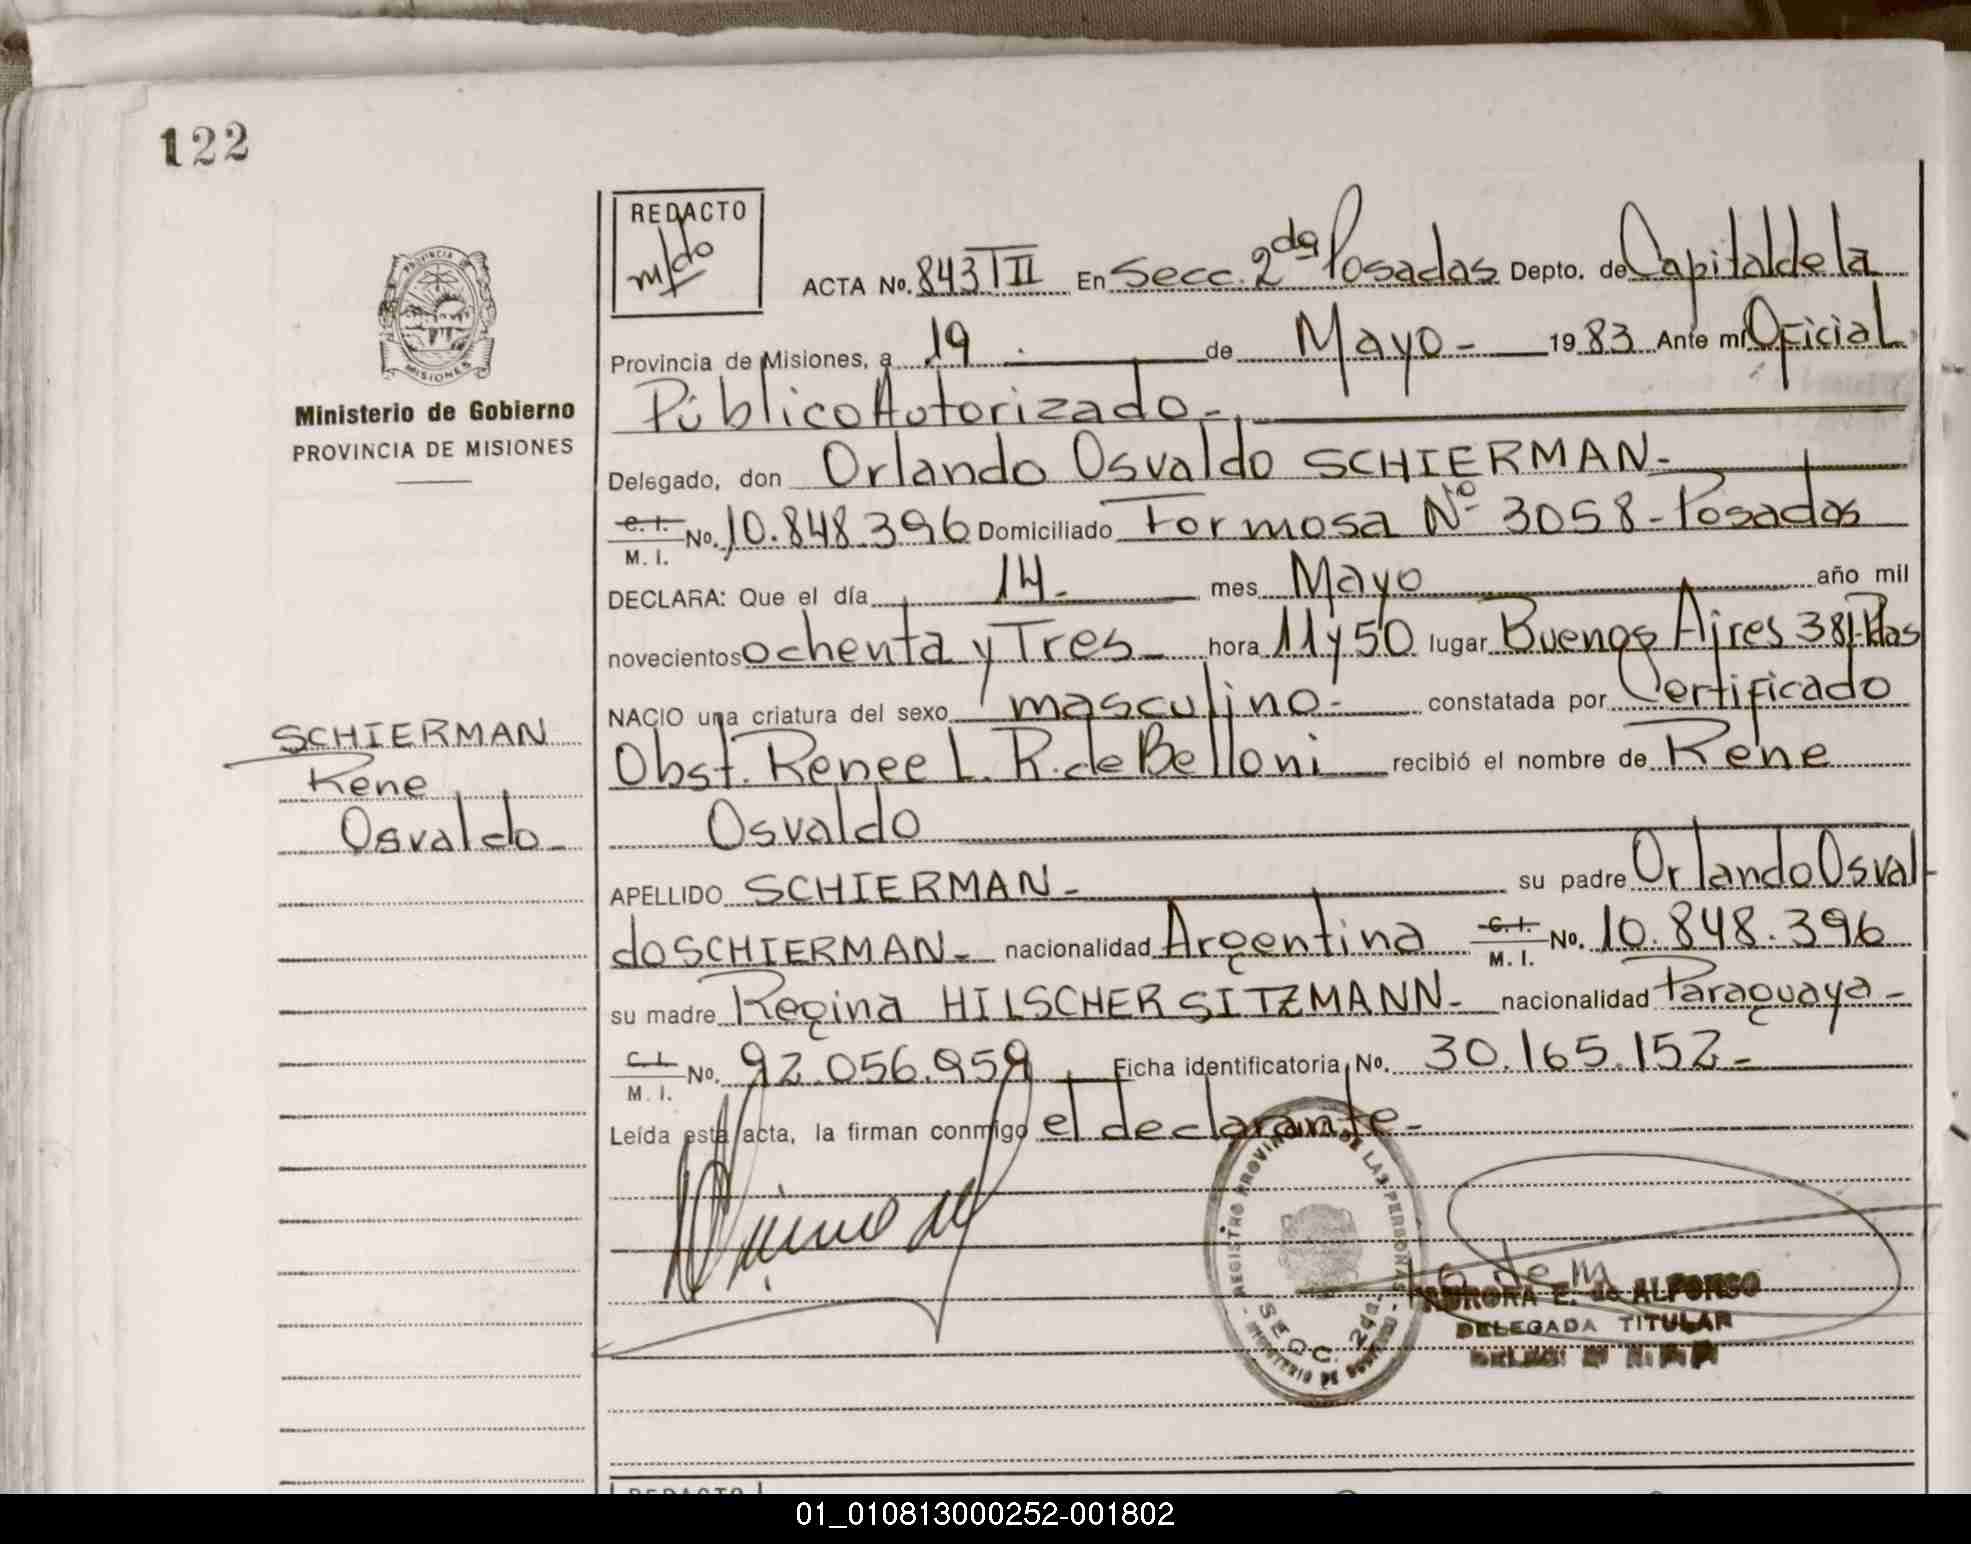 122
REDACTO
PROVINCIA DE
MISIONES
Ministerio de Gobierno
PROVINCIA DE MISIONES
ACTA No. 843 T II En Secc. 2da Posadas Depto. de Capital de la
Provincia de Misiones, a 19 . de Mayo - 1983 Ante mi Oficial
Público Autorizado -
Delegado, don Orlando Osvaldo SCHIERMAN -
C. I. No. 10.848.396 Domiciliado Formosa Nº 3058 - Posadas
M. I.
DECLARA: Que el día 14 - mes Mayo año mil
novecientos ochenta y Tres - hora 11 y 50 lugar Buenos Aires 381-Pdas
NACIO una criatura del sexo masculino - constatada por Certificado
Obst. Renee L. R. de Belloni recibió el nombre de Rene
Osvaldo
SCHIERMAN
Rene
Osvaldo -
APELLIDO SCHIERMAN - su padre Orlando Osval-
do SCHIERMAN - nacionalidad Argentina C. I. No. 10.848.396
M. I.
su madre Regina HILSCHER SITZMANN - nacionalidad Paraguaya -
C. I. No. 92.056.959 Ficha identificatoria No. 30.165.152 -
M. I.
Leída esta acta, la firman conmigo el declarante -
REGISTRO PROVINCIAL DE LAS PERSONAS
SECC. 2da.
MINISTERIO DE GOBIERNO
AURORA E. de ALFONSO
DELEGADA TITULAR
REDACTO
01_010813000252-001802